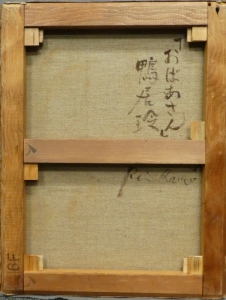 「おばあさん」
鴨居玲
Rei Kamoi
8F